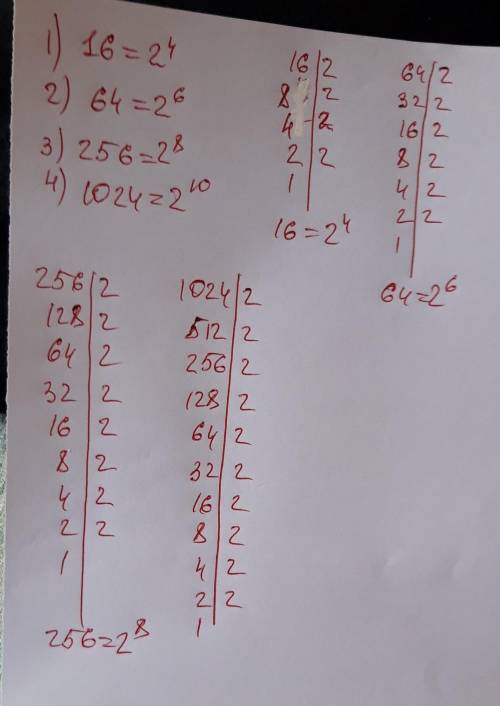 1) 16 = 2⁴
2) 64 = 2⁶
3) 256 = 2⁸
4) 1024 = 2¹⁰
16 | 2
8 | 2
4 | 2
2 | 2
1
16 = 2⁴
64 | 2
32 | 2
16 | 2
8 | 2
4 | 2
2 | 2
1
64 = 2⁶
256 | 2
128 | 2
64 | 2
32 | 2
16 | 2
8 | 2
4 | 2
2 | 2
1
256 = 2⁸
1024 | 2
512 | 2
256 | 2
128 | 2
64 | 2
32 | 2
16 | 2
8 | 2
4 | 2
2 | 2
1